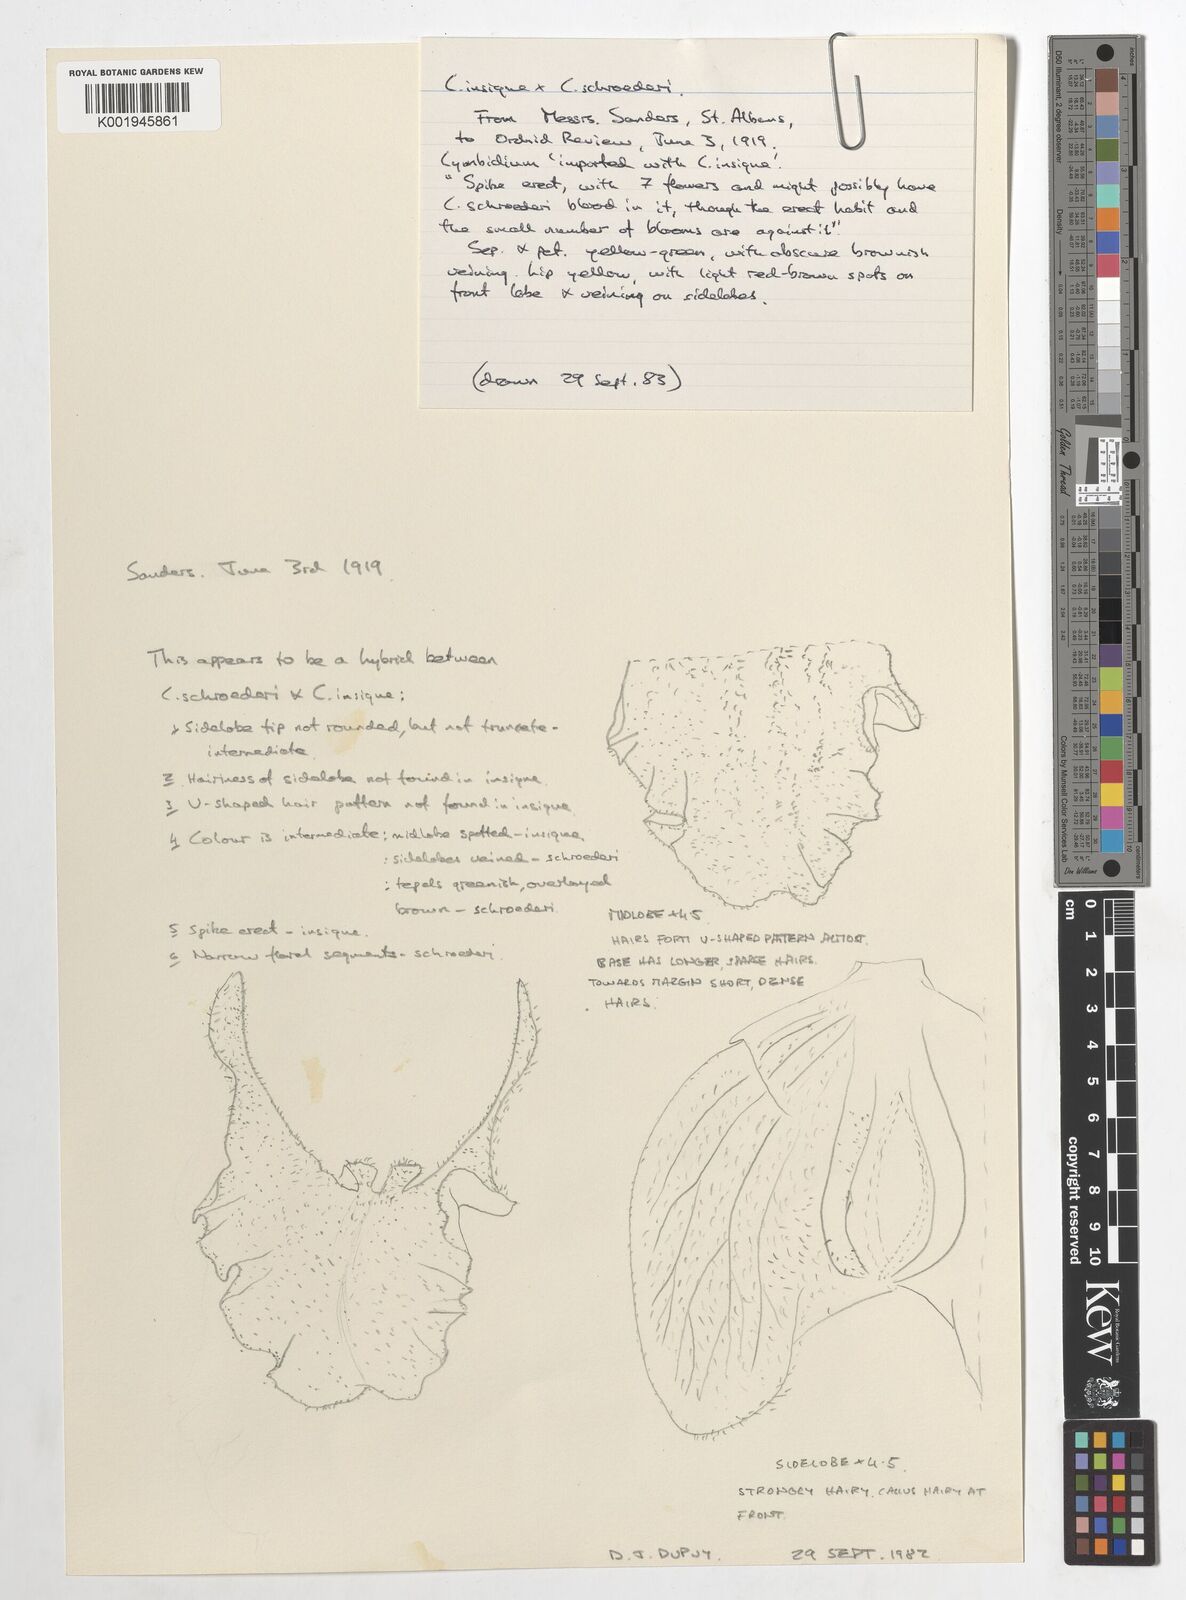 ROYAL BOTANIC GARDENS KEW
K001945861
C. insigne x C. schroederi.
From Messrs. Sanders, St. Albans,
to Orchid Review, June 3, 1919.
Cymbidium 'imported with C. insigne'.
"Spike erect, with 7 flowers and might possibly have
C. schroederi blood in it, though the erect habit and
the small number of blooms are against it".
Sep. & pet. yellow-green, with obscure brownish
veining. Lip yellow, with light red-brown spots on
front lobe & veining on sidelobes.
(drawn 29 Sept. 83)
Sanders. June 3rd 1919.
This appears to be a hybrid between
C. schroederi x C. insigne:
1 Sidelobe tip not rounded, but not truncate -
intermediate.
2 Hairiness of sidelobe not found in insigne
3 U-shaped hair pattern not found in insigne
4 Colour is intermediate: midlobe spotted - insigne
: sidelobes veined - schroederi
: tepals greenish, overlayed
brown - schroederi
5 Spike erect - insigne.
6 Narrow floral segments - schroederi.
MIDLOBE x4.5
HAIRS FORM U-SHAPED PATTERN ALMOST.
BASE HAS LONGER, SPARSE HAIRS.
TOWARDS MARGIN SHORT, DENSE
HAIRS.
SIDELOBE x4.5.
STRONGLY HAIRY. CALLUS HAIRY AT
FRONT.
D. J. DUPUY. 29 SEPT. 1982
D50 Illuminant, 2 degree observer
Density
Golden Thread
Colors by Munsell Color Services Lab
centimeters
Don Williams
cm
0 1 2 3 4 5 6 7 8 9 10
copyright reserved
Royal Botanic Gardens
Kew